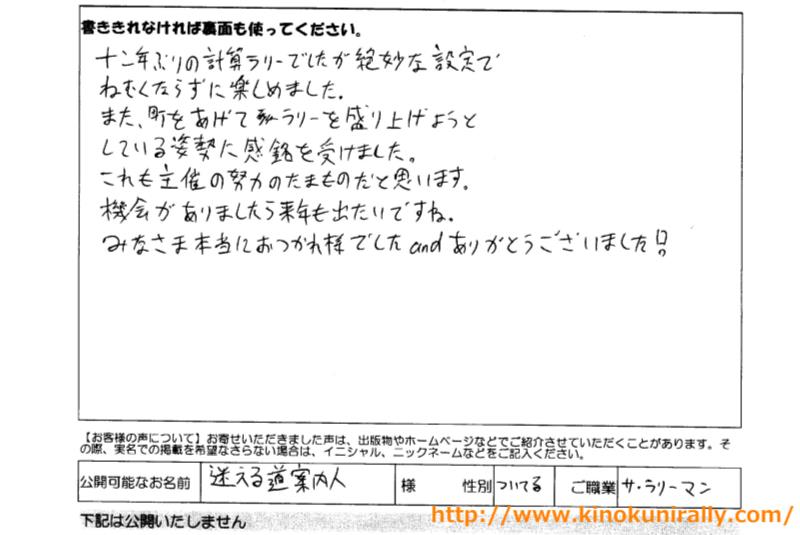 書ききれなければ裏面も使ってください。
十二年ぶりの計算ラリーでしたが絶妙な設定で
ねむくならずに楽しめました。
また、町をあげてラリーを盛り上げようと
している姿勢に感銘を受けました。
これも主催の努力のたまものだと思います。
機会がありましたら来年も出たいですね。
みなさま本当におつかれ様でした andありがとうございました!!
【お客様の声について】お寄せいただきました声は、出版物やホームページなどでご紹介させていただくことがあります。そ
の際、実名での掲載を希望なさらない場合は、イニシャル、ニックネームなどをご記入ください。
公開可能なお名前 迷える道案内人 様 性別 ついてる ご職業 サ・ラリーマン
下記は公開いたしません
http://www.kinokunirally.com/